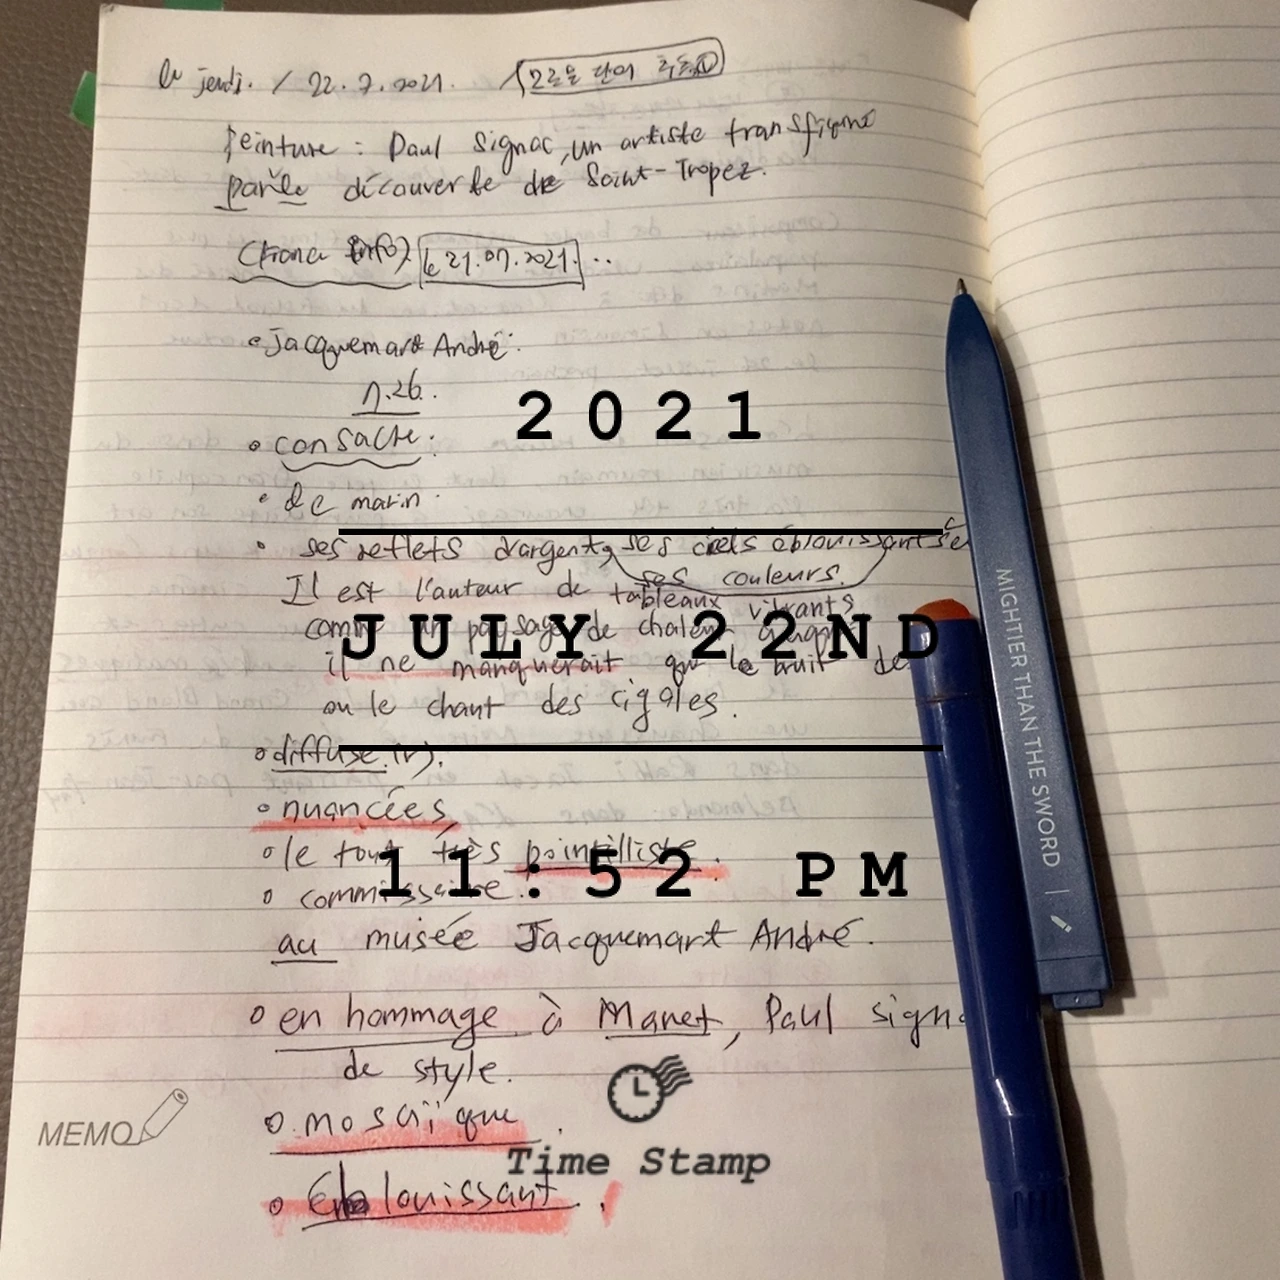 le jeudi. / 22.7.2021. 모르는 단어 추측①
Peinture : Paul Signac, un artiste transfiguré
par la découverte de Saint-Tropez.
(france info) le 21.07.2021. ..
• Jacquemart André.
n.26.
• consacre.
• de marin.
• ses reflets d'argent, ses ciels éblouissants et
ses couleurs.
Il est l'auteur de tableaux vibrants
comme un paysage de chaleur
il ne manquerait que le bruit de
ou le chant des cigales.
• diffuse.(r).
• nuancées,
• le tout très pointilliste.
• commissaire.
au musée Jacquemart André.
• en hommage à Manet, Paul Signa
de style.
• mosaïque.
• Eblouissant.
2021
JULY 22ND
11:52 PM
Time Stamp
MEMO
MIGHTIER THAN THE SWORD |